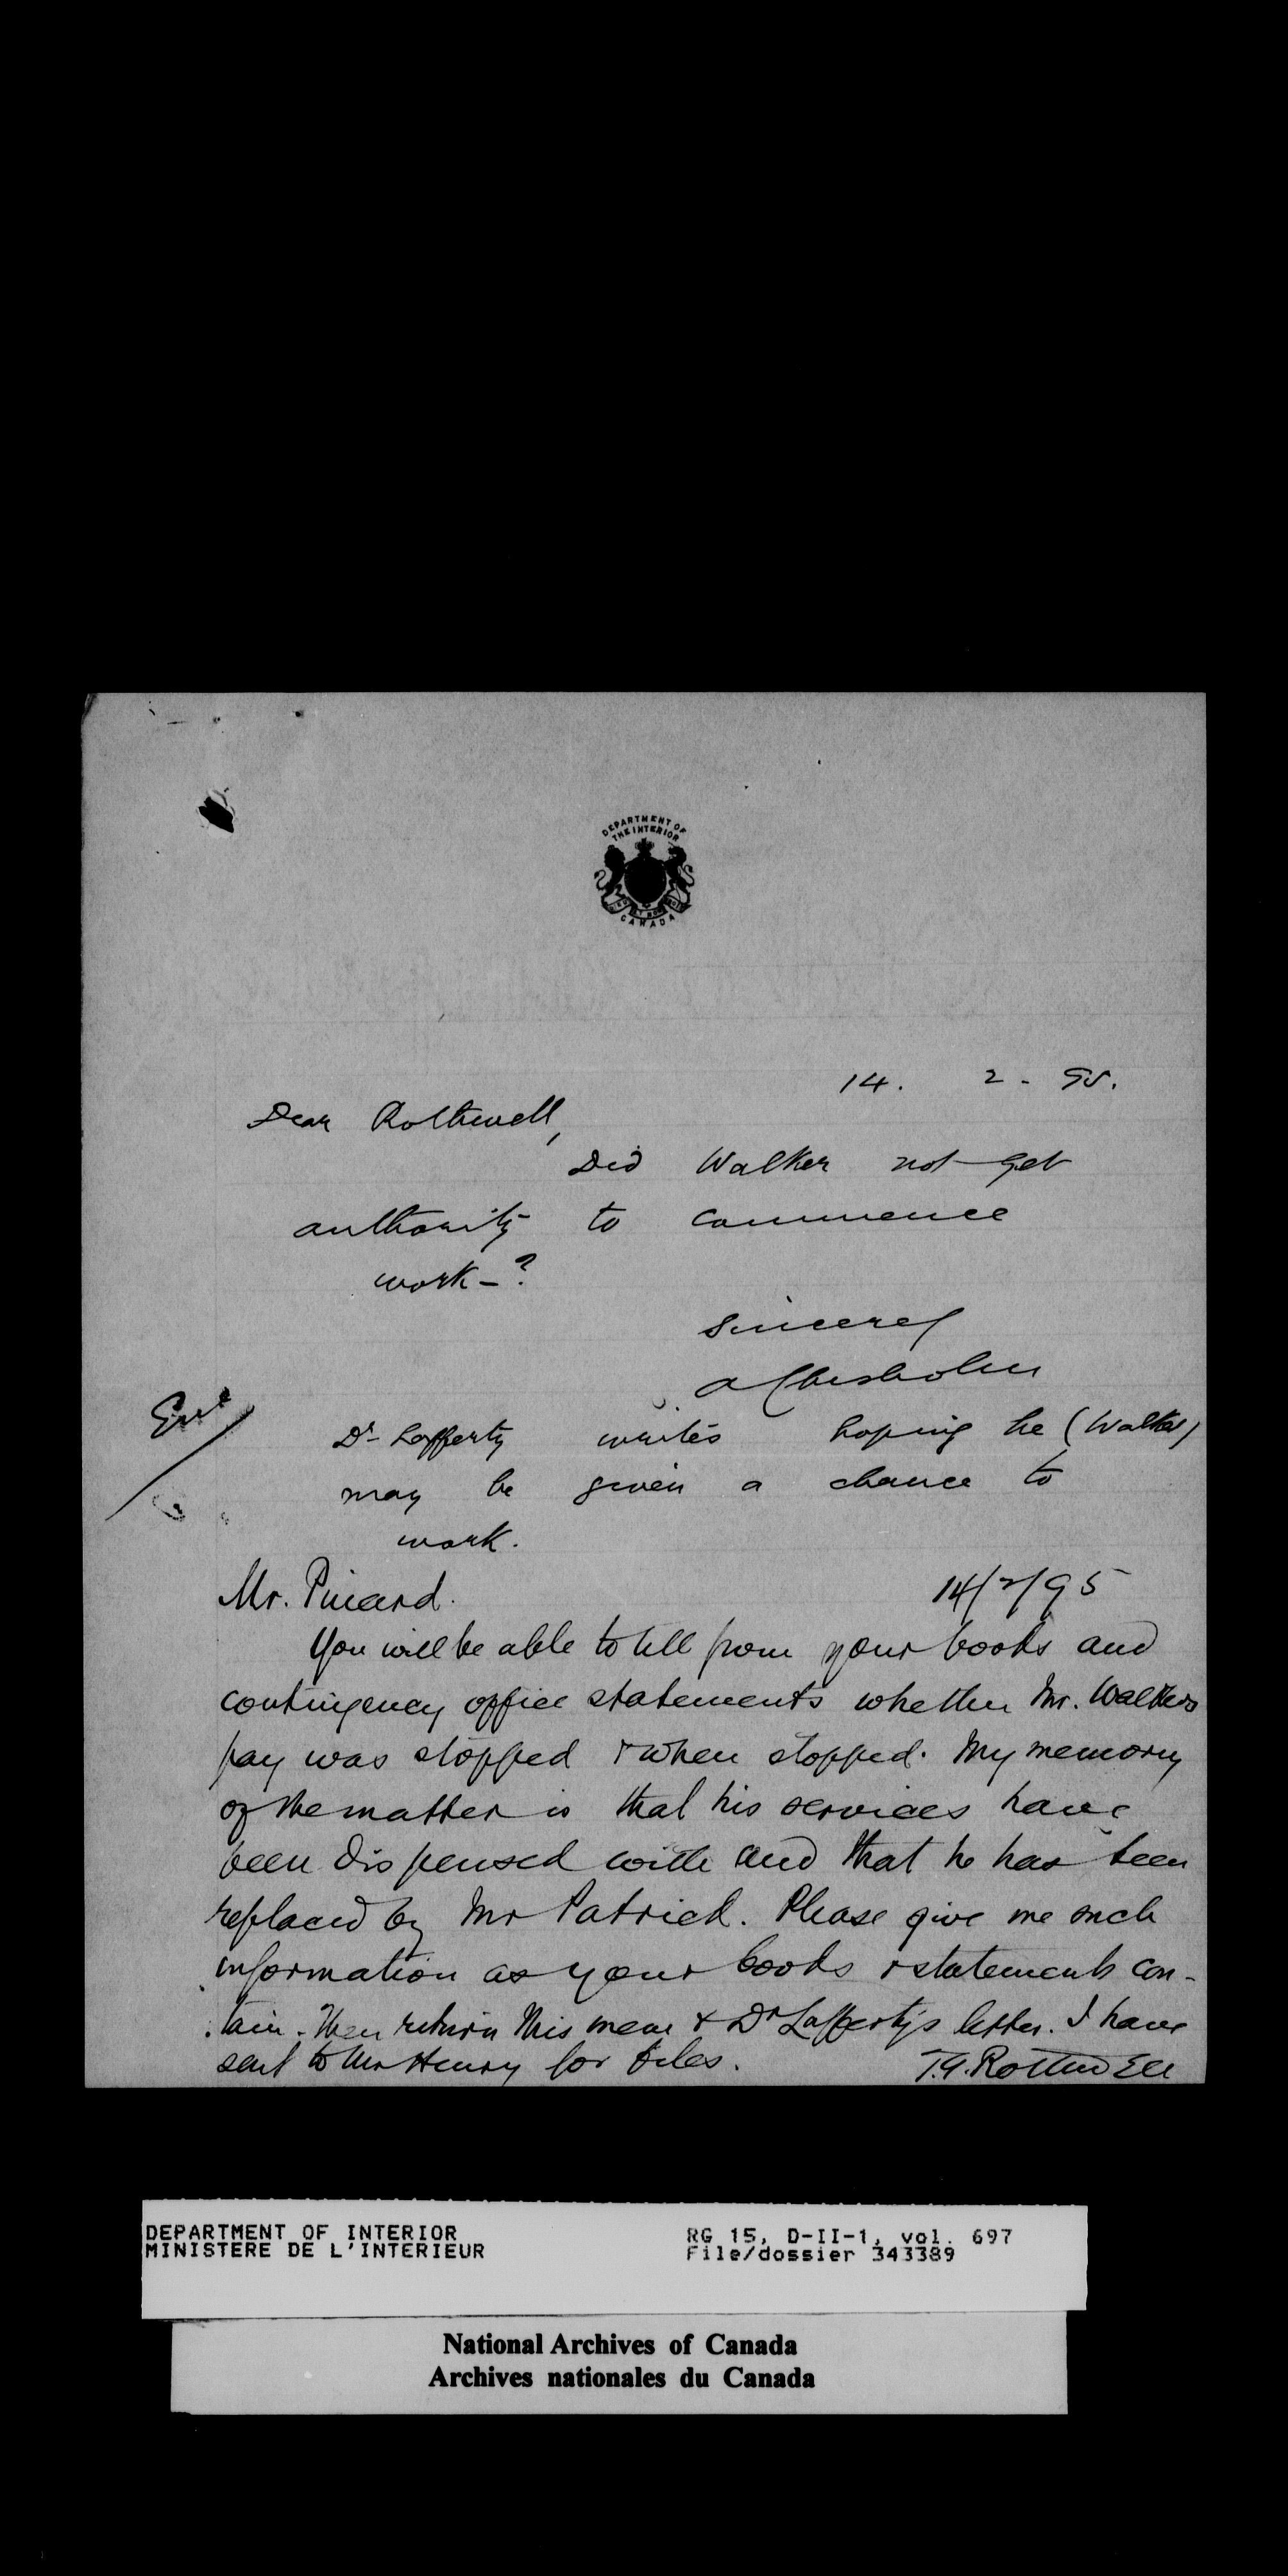 DEPARTMENT OF
THE INTERIOR
CANADA
14. 2 - 95.
Dear Rothwell,
Did Walker not get
authority to commence
work - ?
Sincerely
A Chisholm
Dr Lafferty writes hoping he (Walker)
may be given a chance to
work.
Mr. Pinard. 14/2/95
You will be able to tell from your books and
contingency office statements whether Mr. Walkers
pay was stopped & when stopped. My memory
of the matter is that his services have
been dispensed with and that he has been
replaced by Mr Patrick. Please give me such
information as your books & statements con-
tain. Then return this memo & Dr Lafferty's letter. I have
sent to Mr Henry for files. T.G. Rothwell
DEPARTMENT OF INTERIOR
MINISTERE DE L'INTERIEUR
RG 15, D-II-1, vol. 697
File/dossier 343389
National Archives of Canada
Archives nationales du Canada